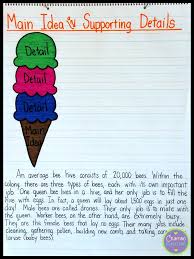 Main Idea & Supporting Details
Detail
Detail
Detail
Main
Idea
An average bee hive consists of 20,000 bees. Within the
colony, there are three types of bees, each with its own important
job. One queen bee lives in a hive, and her only job is to fill the
hive with eggs. In fact, a queen will lay about 1,500 eggs in just one
day! Drones are male bees. Their only job is to mate with
the queen. Worker bees, on the other hand, are extremely busy.
They are female bees that lay no eggs. Their many jobs include
cleaning, gathering pollen, building new combs and taking care of
larvae (baby bees).